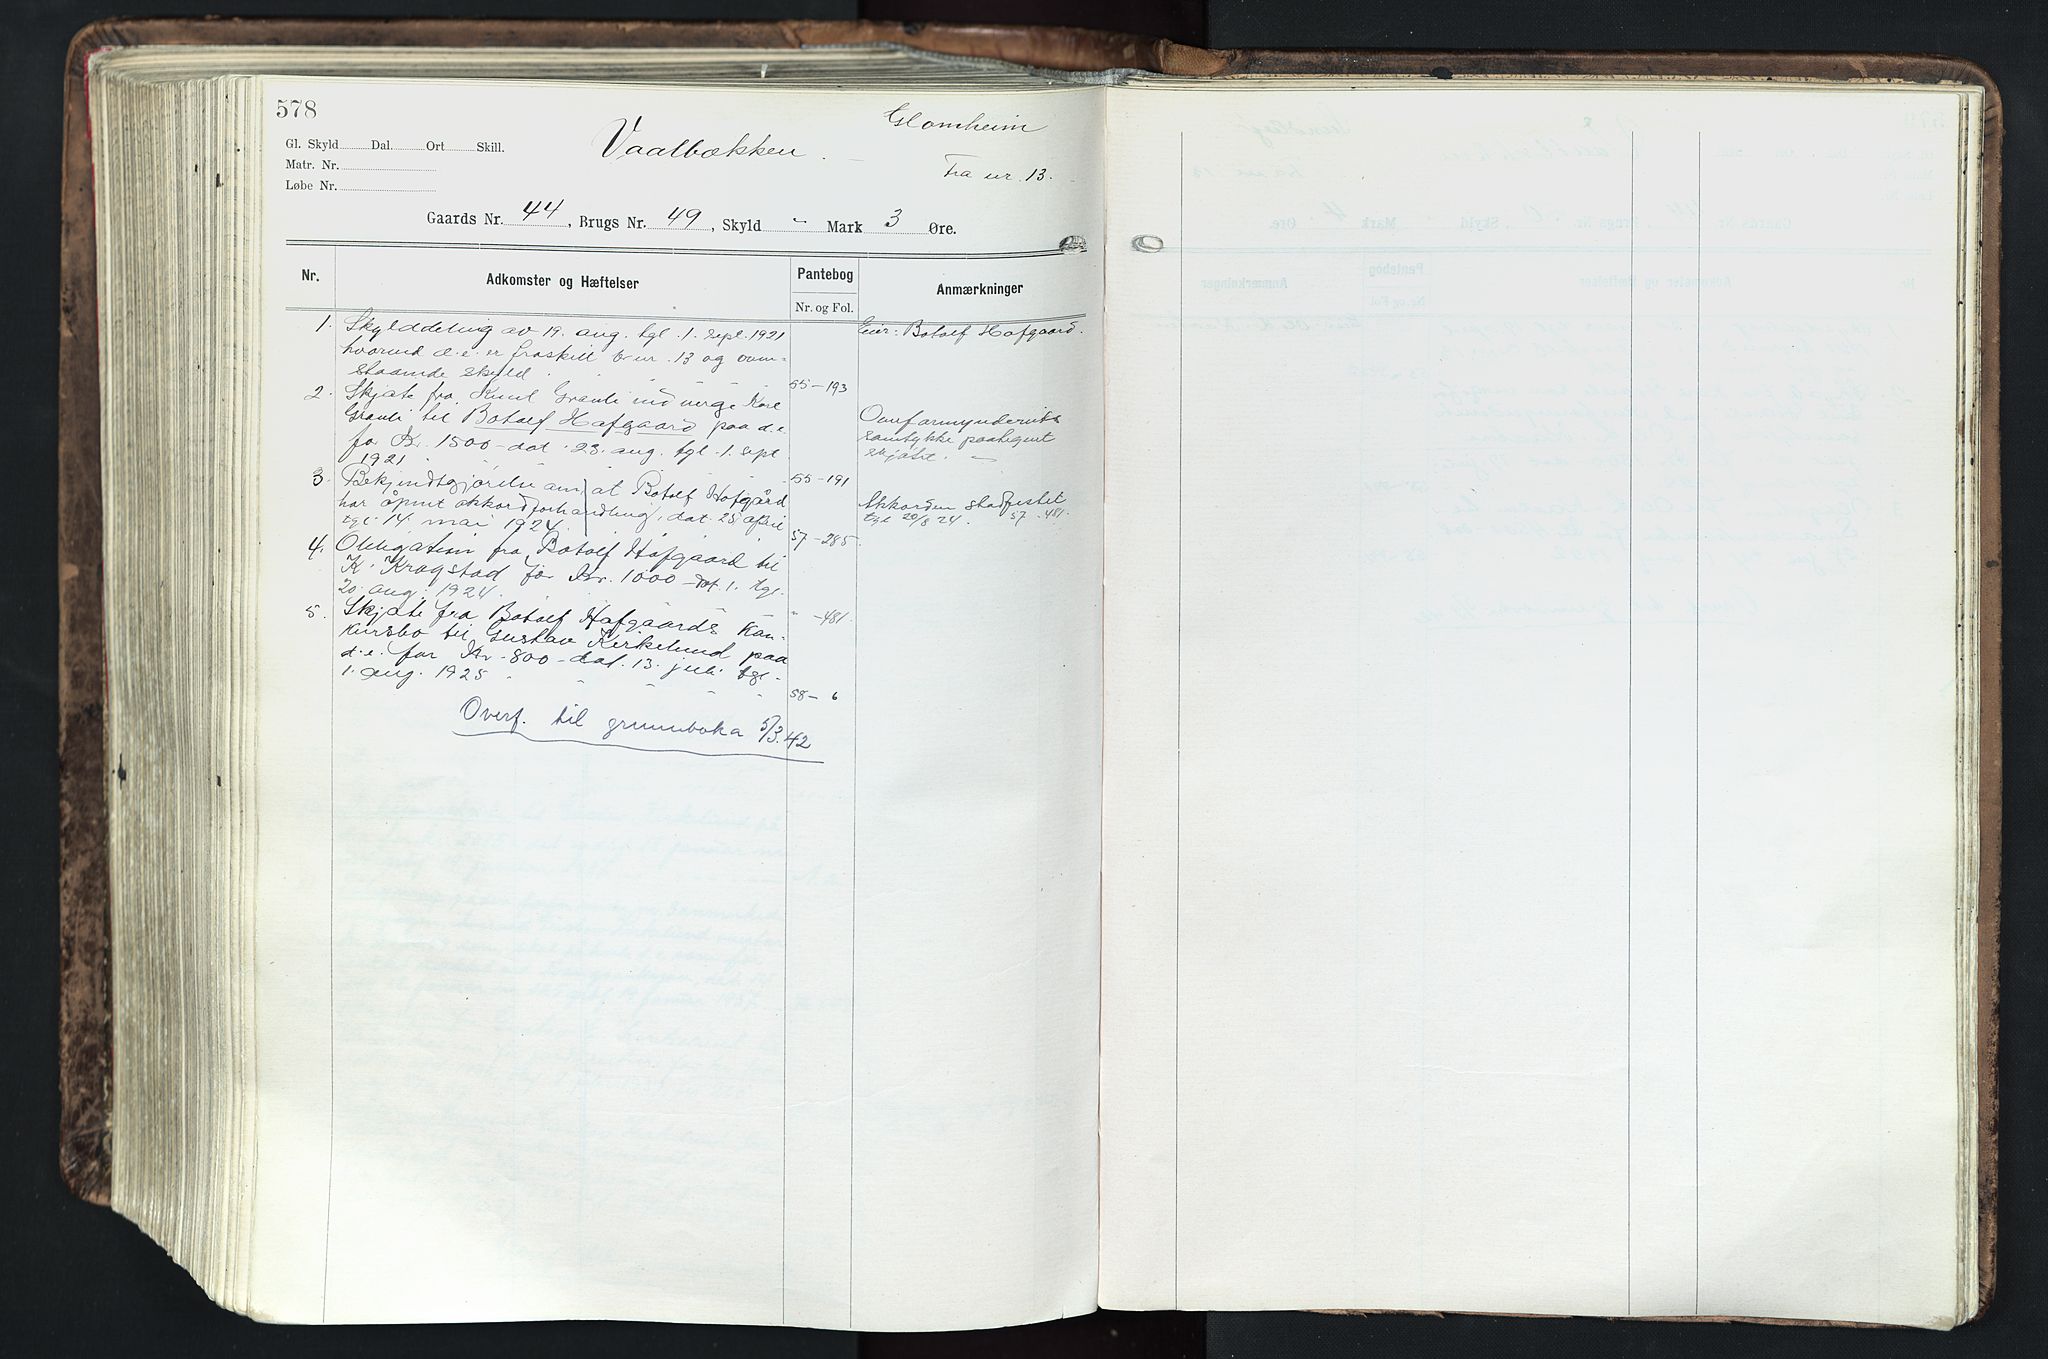 578
Glomheim
Gl. Skyld Dal. Ort Skill.
Vaalbækken.
Matr. Nr.
Fra nr. 13.
Løbe Nr.
Gaards Nr. 44, Brugs Nr. 49, Skyld " Mark 3 Øre.
Nr. Adkomster og Hæftelser Pantebog Anmærkninger
Nr. og Fol.
1. Skylddeling av 19. aug. tgl. 1. sept. 1921
hvorved d.e. er fraskilt b.nr. 13 og oven-
staaende skyld. 55-193
Eier: Botolf Hofgaard.
2. Skjøte fra Knut Granli med verge Kare
Granli til Botolf Hofgaard paa d.e.
for Kr. 1500 - dat. 23. aug. tgl. 1. sept
1921. 55-191
Overformynderiets
samtykke paategnet
skjøtet.
3. Bekjendtgjørelse om, at Botolf Hofgård
har åpnet akkordforhandling, dat. 25 april
tgl. 14. mai 1924. 57-285
Akkorden stadfestet
tgl 20/8 24. 57-481.
4. Obligation fra Botolf Hofgaard til
K. Krogstad for Kr. 1000 - dat. 1. tgl.
20. aug. 1924. " -481.
5. Skjøte fra Botolf Hofgaards kon-
kursbo til Gustav Kirkelund paa
d.e. for Kr. 800 - dat. 13. juli tgl.
1. aug. 1925 58-6
Overf. til grunnboka 5/3.42